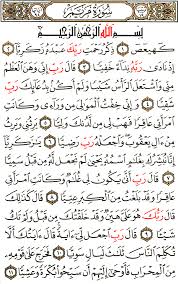 سُورَةُ مَرْيَمَ
بِسْمِ اللَّهِ الرَّحْمَٰنِ الرَّحِيمِ
كهيعص ١ ذِكْرُ رَحْمَتِ رَبِّكَ عَبْدَهُ زَكَرِيَّا ٢
إِذْ نَادَىٰ رَبَّهُ نِدَاءً خَفِيًّا ٣ قَالَ رَبِّ إِنِّي وَهَنَ الْعَظْمُ
مِنِّي وَاشْتَعَلَ الرَّأْسُ شَيْبًا وَلَمْ أَكُنْ بِدُعَائِكَ رَبِّ
شَقِيًّا ٤ وَإِنِّي خِفْتُ الْمَوَالِيَ مِنْ وَرَائِي وَكَانَتِ
امْرَأَتِي عَاقِرًا فَهَبْ لِي مِنْ لَدُنْكَ وَلِيًّا ٥ يَرِثُنِي وَيَرِثُ
مِنْ آلِ يَعْقُوبَ وَاجْعَلْهُ رَبِّ رَضِيًّا ٦ يَا زَكَرِيَّا
إِنَّا نُبَشِّرُكَ بِغُلَامٍ اسْمُهُ يَحْيَىٰ لَمْ نَجْعَلْ لَهُ مِنْ قَبْلُ
سَمِيًّا ٧ قَالَ رَبِّ أَنَّىٰ يَكُونُ لِي غُلَامٌ وَكَانَتِ امْرَأَتِي
عَاقِرًا وَقَدْ بَلَغْتُ مِنَ الْكِبَرِ عِتِيًّا ٨ قَالَ كَذَٰلِكَ
قَالَ رَبُّكَ هُوَ عَلَيَّ هَيِّنٌ وَقَدْ خَلَقْتُكَ مِنْ قَبْلُ وَلَمْ تَكُ
شَيْئًا ٩ قَالَ رَبِّ اجْعَلْ لِي آيَةً قَالَ آيَتُكَ أَلَّا
تُكَلِّمَ النَّاسَ ثَلَاثَ لَيَالٍ سَوِيًّا ١٠ فَخَرَجَ عَلَىٰ قَوْمِهِ
مِنَ الْمِحْرَابِ فَأَوْحَىٰ إِلَيْهِمْ أَنْ سَبِّحُوا بُكْرَةً وَعَشِيًّا ١١